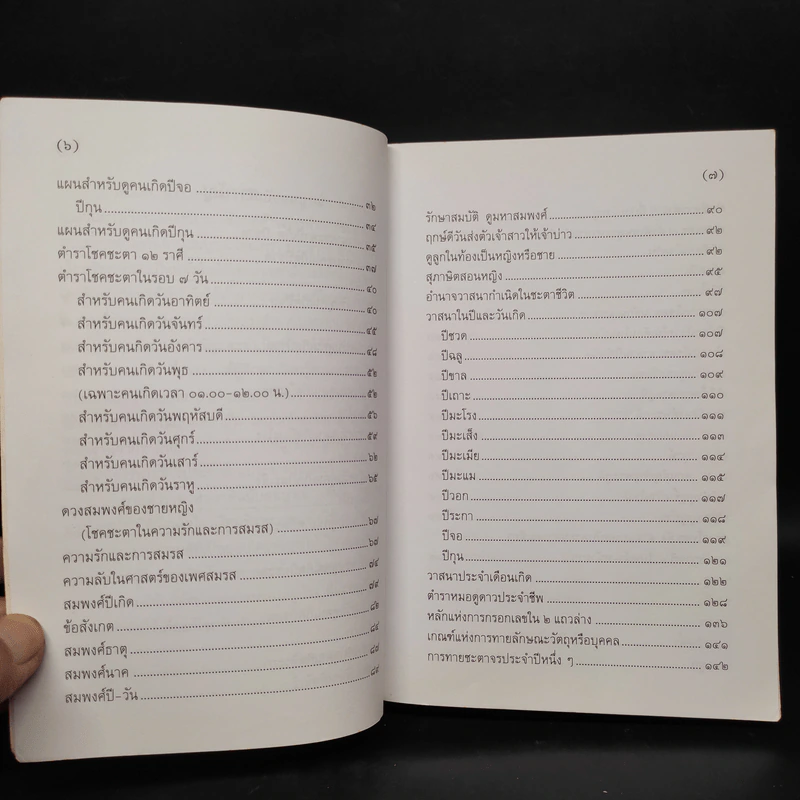 (๖)
แผนสำหรับดูคนเกิดปีจอ ........ ๓๒
ปีกุน ........ ๓๔
แผนสำหรับดูคนเกิดปีกุน ........ ๓๕
ตำราโชคชะตา ๑๒ ราศี ........ ๓๗
ตำราโชคชะตาในรอบ ๗ วัน ........ ๔๐
สำหรับคนเกิดวันอาทิตย์ ........ ๔๐
สำหรับคนเกิดวันจันทร์ ........ ๔๕
สำหรับคนเกิดวันอังคาร ........ ๔๘
สำหรับคนเกิดวันพุธ ........ ๕๒
(เฉพาะคนเกิดเวลา ๐๑.๐๐-๑๒.๐๐ น.) ........ ๕๒
สำหรับคนเกิดวันพฤหัสบดี ........ ๕๖
สำหรับคนเกิดวันศุกร์ ........ ๕๙
สำหรับคนเกิดวันเสาร์ ........ ๖๒
สำหรับคนเกิดวันราหู ........ ๖๕
ดวงสมพงศ์ของชายหญิง
(โชคชะตาในความรักและการสมรส) ........ ๖๗
ความรักและการสมรส ........ ๖๗
ความลับในศาสตร์ของเพศสมรส ........ ๗๔
สมพงศ์ปีเกิด ........ ๗๙
ข้อสังเกต ........ ๘๒
สมพงศ์ธาตุ ........ ๘๔
สมพงศ์นาค ........ ๘๗
สมพงศ์ปี-วัน ........ ๘๙
(๗)
รักษาสมบัติ ดูมหาสมพงศ์ ........ ๙๐
ฤกษ์ดีวันส่งตัวเจ้าสาวให้เจ้าบ่าว ........ ๙๒
ดูลูกในท้องเป็นหญิงหรือชาย ........ ๙๒
สุภาษิตสอนหญิง ........ ๙๕
อำนาจวาสนากำเนิดในชะตาชีวิต ........ ๙๗
วาสนาในปีและวันเกิด ........ ๑๐๗
ปีชวด ........ ๑๐๗
ปีฉลู ........ ๑๐๘
ปีขาล ........ ๑๐๙
ปีเถาะ ........ ๑๑๐
ปีมะโรง ........ ๑๑๑
ปีมะเส็ง ........ ๑๑๓
ปีมะเมีย ........ ๑๑๔
ปีมะแม ........ ๑๑๕
ปีวอก ........ ๑๑๗
ปีระกา ........ ๑๑๘
ปีจอ ........ ๑๑๙
ปีกุน ........ ๑๒๑
วาสนาประจำเดือนเกิด ........ ๑๒๒
ตำราหมอดูดาวประจำชีพ ........ ๑๒๘
หลักแห่งการกรอกเลขใน ๒ แถวล่าง ........ ๑๓๖
เกณฑ์แห่งการทายลักษณะวัตถุหรือบุคคล ........ ๑๔๑
การทายชะตาจรประจำปีหนึ่ง ๆ ........ ๑๔๒